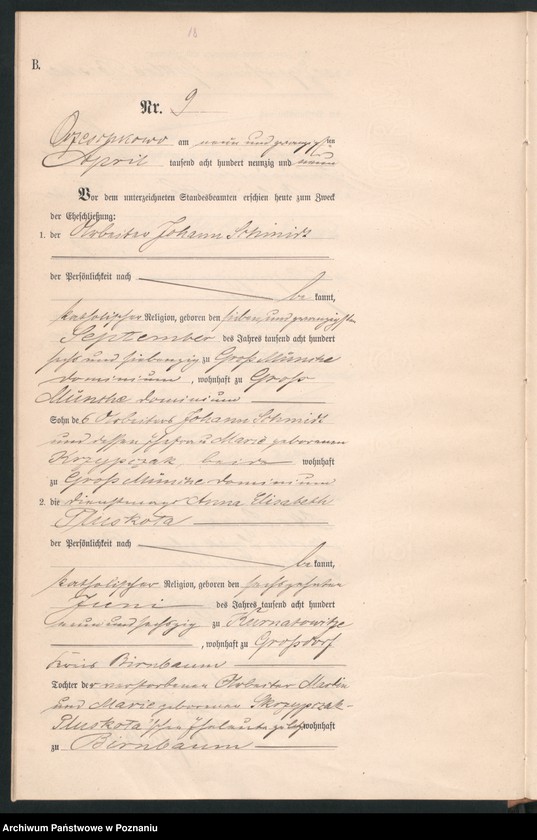 18
B.
Nr. 9
Orzeszkowo am neun und zwanzigsten
April tausend acht hundert neunzig und neun
Vor dem unterzeichneten Standesbeamten erschien heute zum Zweck
der Eheschließung:
1. der Arbeiter Johann Schmidt
der Persönlichkeit nach
be kannt,
katholischer Religion, geboren den sieben und zwanzigsten
September des Jahres tausend acht hundert
sechs und siebenzig zu Groß Münche
Dominium, wohnhaft zu Groß
Münche Dominium
Sohn des Arbeiters Johann Schmidt
und dessen Ehefrau Marie geborenen
Krzypczak, beide wohnhaft
zu Groß Münche Dominium
2. die Dienstmagd Anna Elisabeth
Pluskota
der Persönlichkeit nach
be kannt,
katholischer Religion, geboren den sechszehnten
Juni des Jahres tausend acht hundert
neun und sechszig zu Kurnatowitze
, wohnhaft zu Großdorf
Kreis Birnbaum
Tochter der verstorbenen Arbeiter Martin
und Marie geborenen Skrzypczak-
Pluskota'schen Eheleute wohnhaft
zu Birnbaum
Archiwum Państwowe w Poznaniu